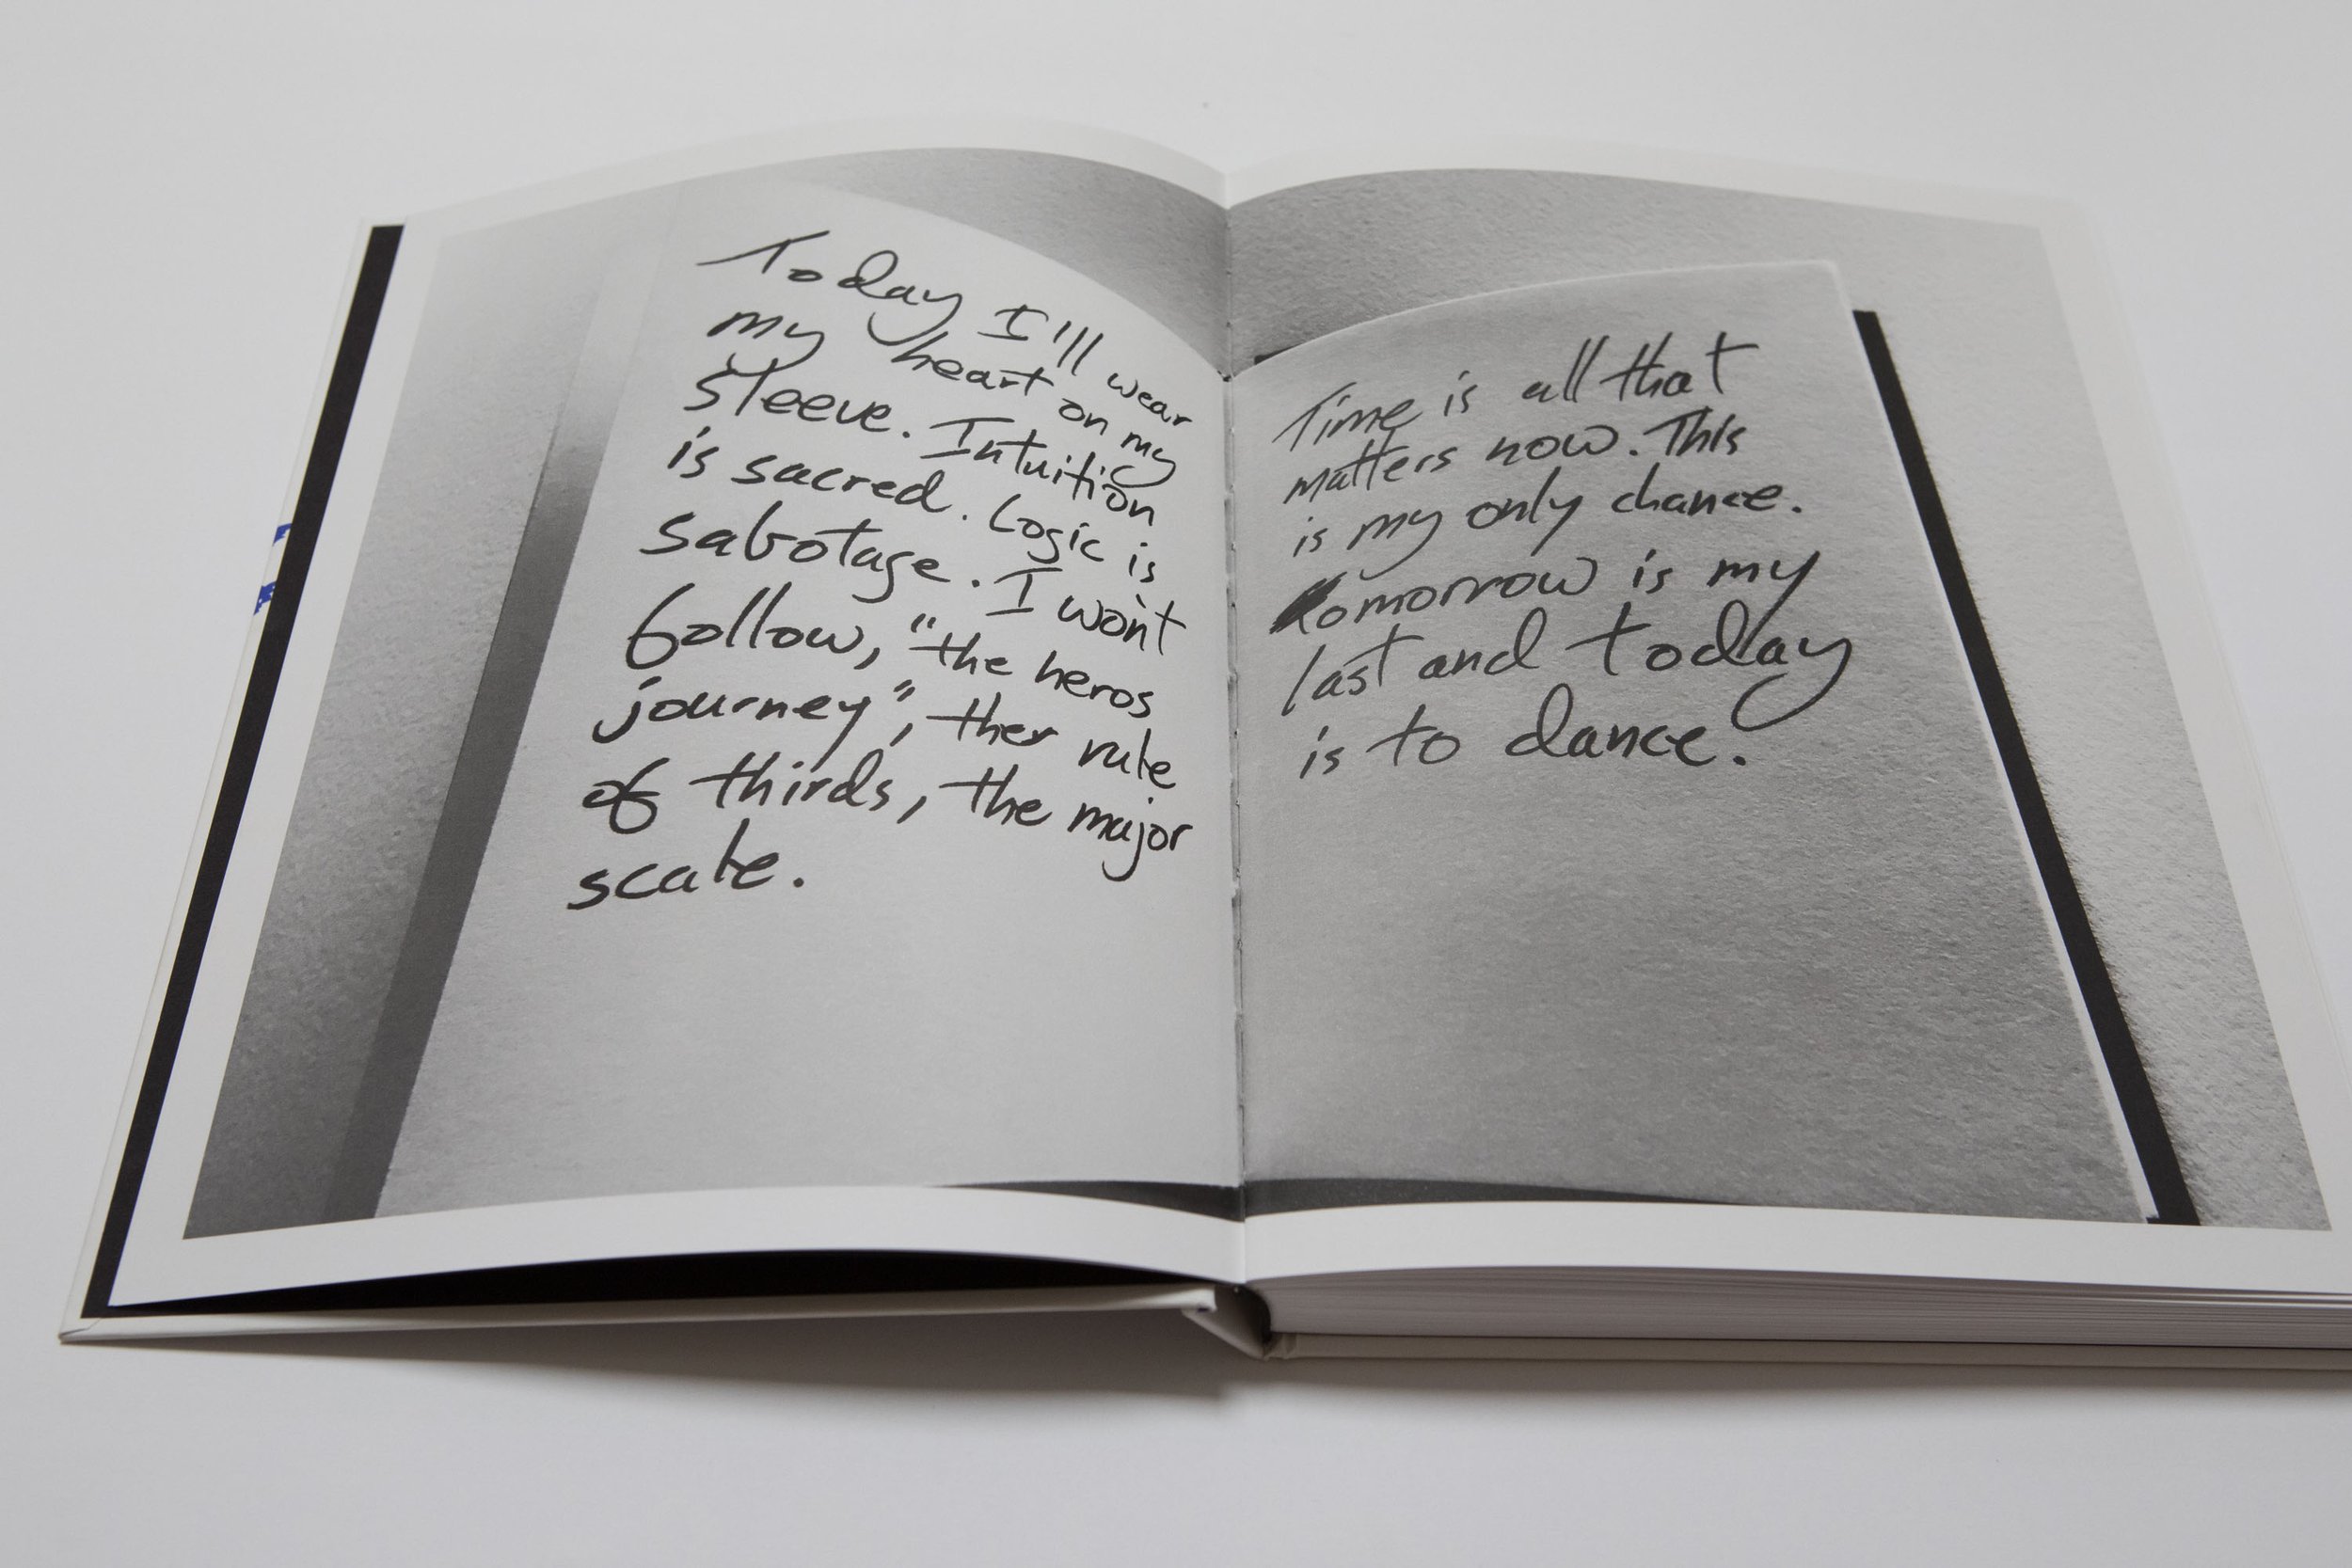 Today I'll wear
my heart on my
sleeve. Intuition
is sacred. Logic is
sabotage. I won't
follow, "the heros
journey", ther rule
of thirds, the major
scale.
Time is all that
matters now. This
is my only chance.
tomorrow is my
last and today
is to dance.